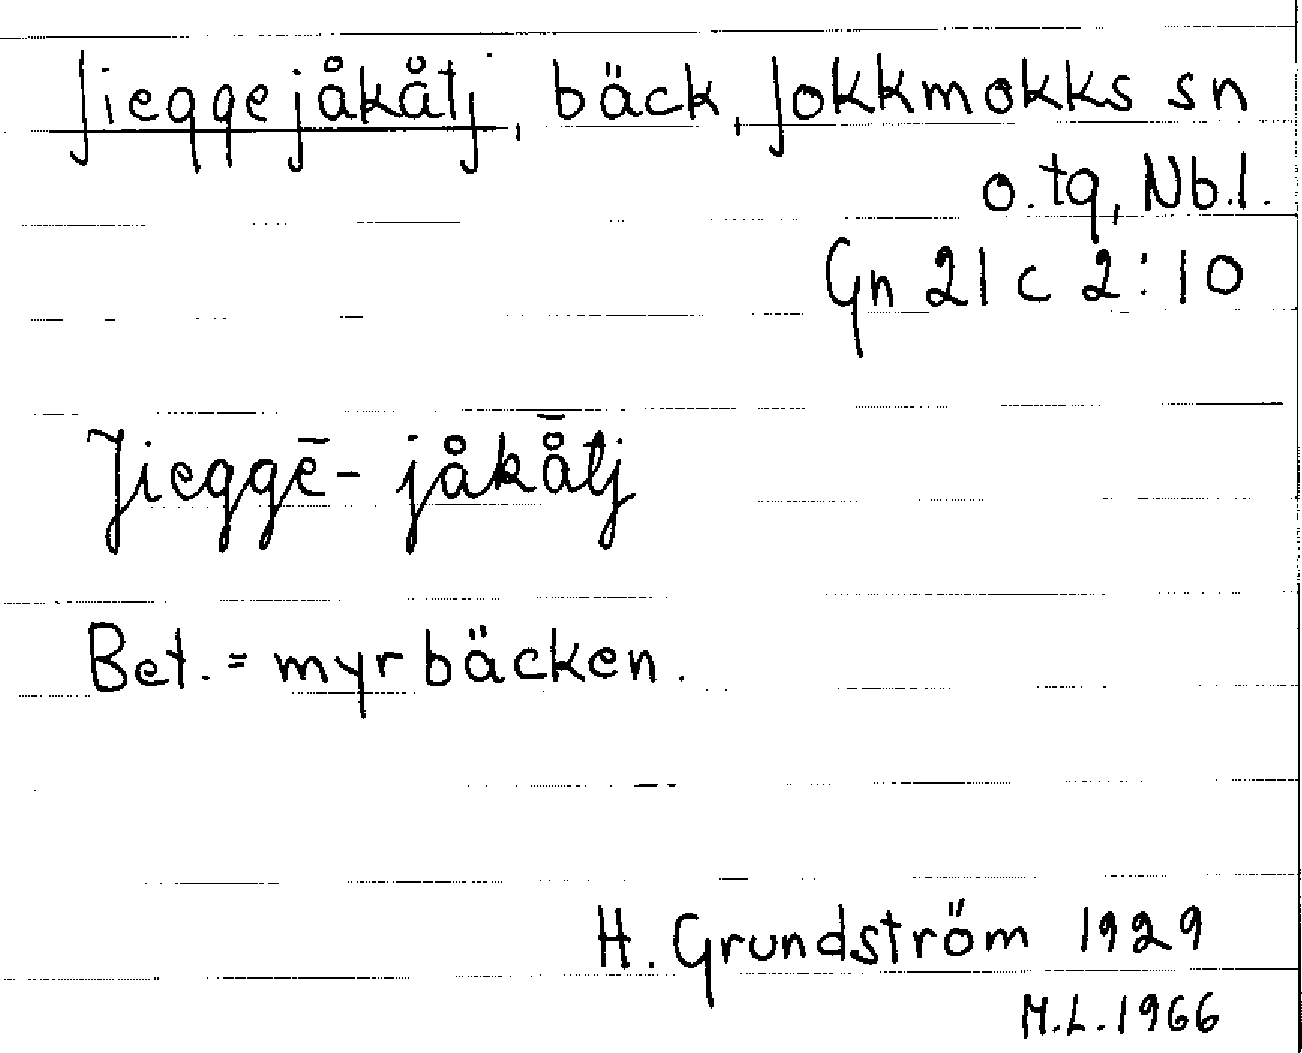 Jieggejåkåtj, bäck, Jokkmokks sn
o. tg, Nb.l.
Gn 21 c 2:10
Jieggē- jåkå̄tj
Bet. = myrbäcken.
H. Grundström 1929
M.L. 1966